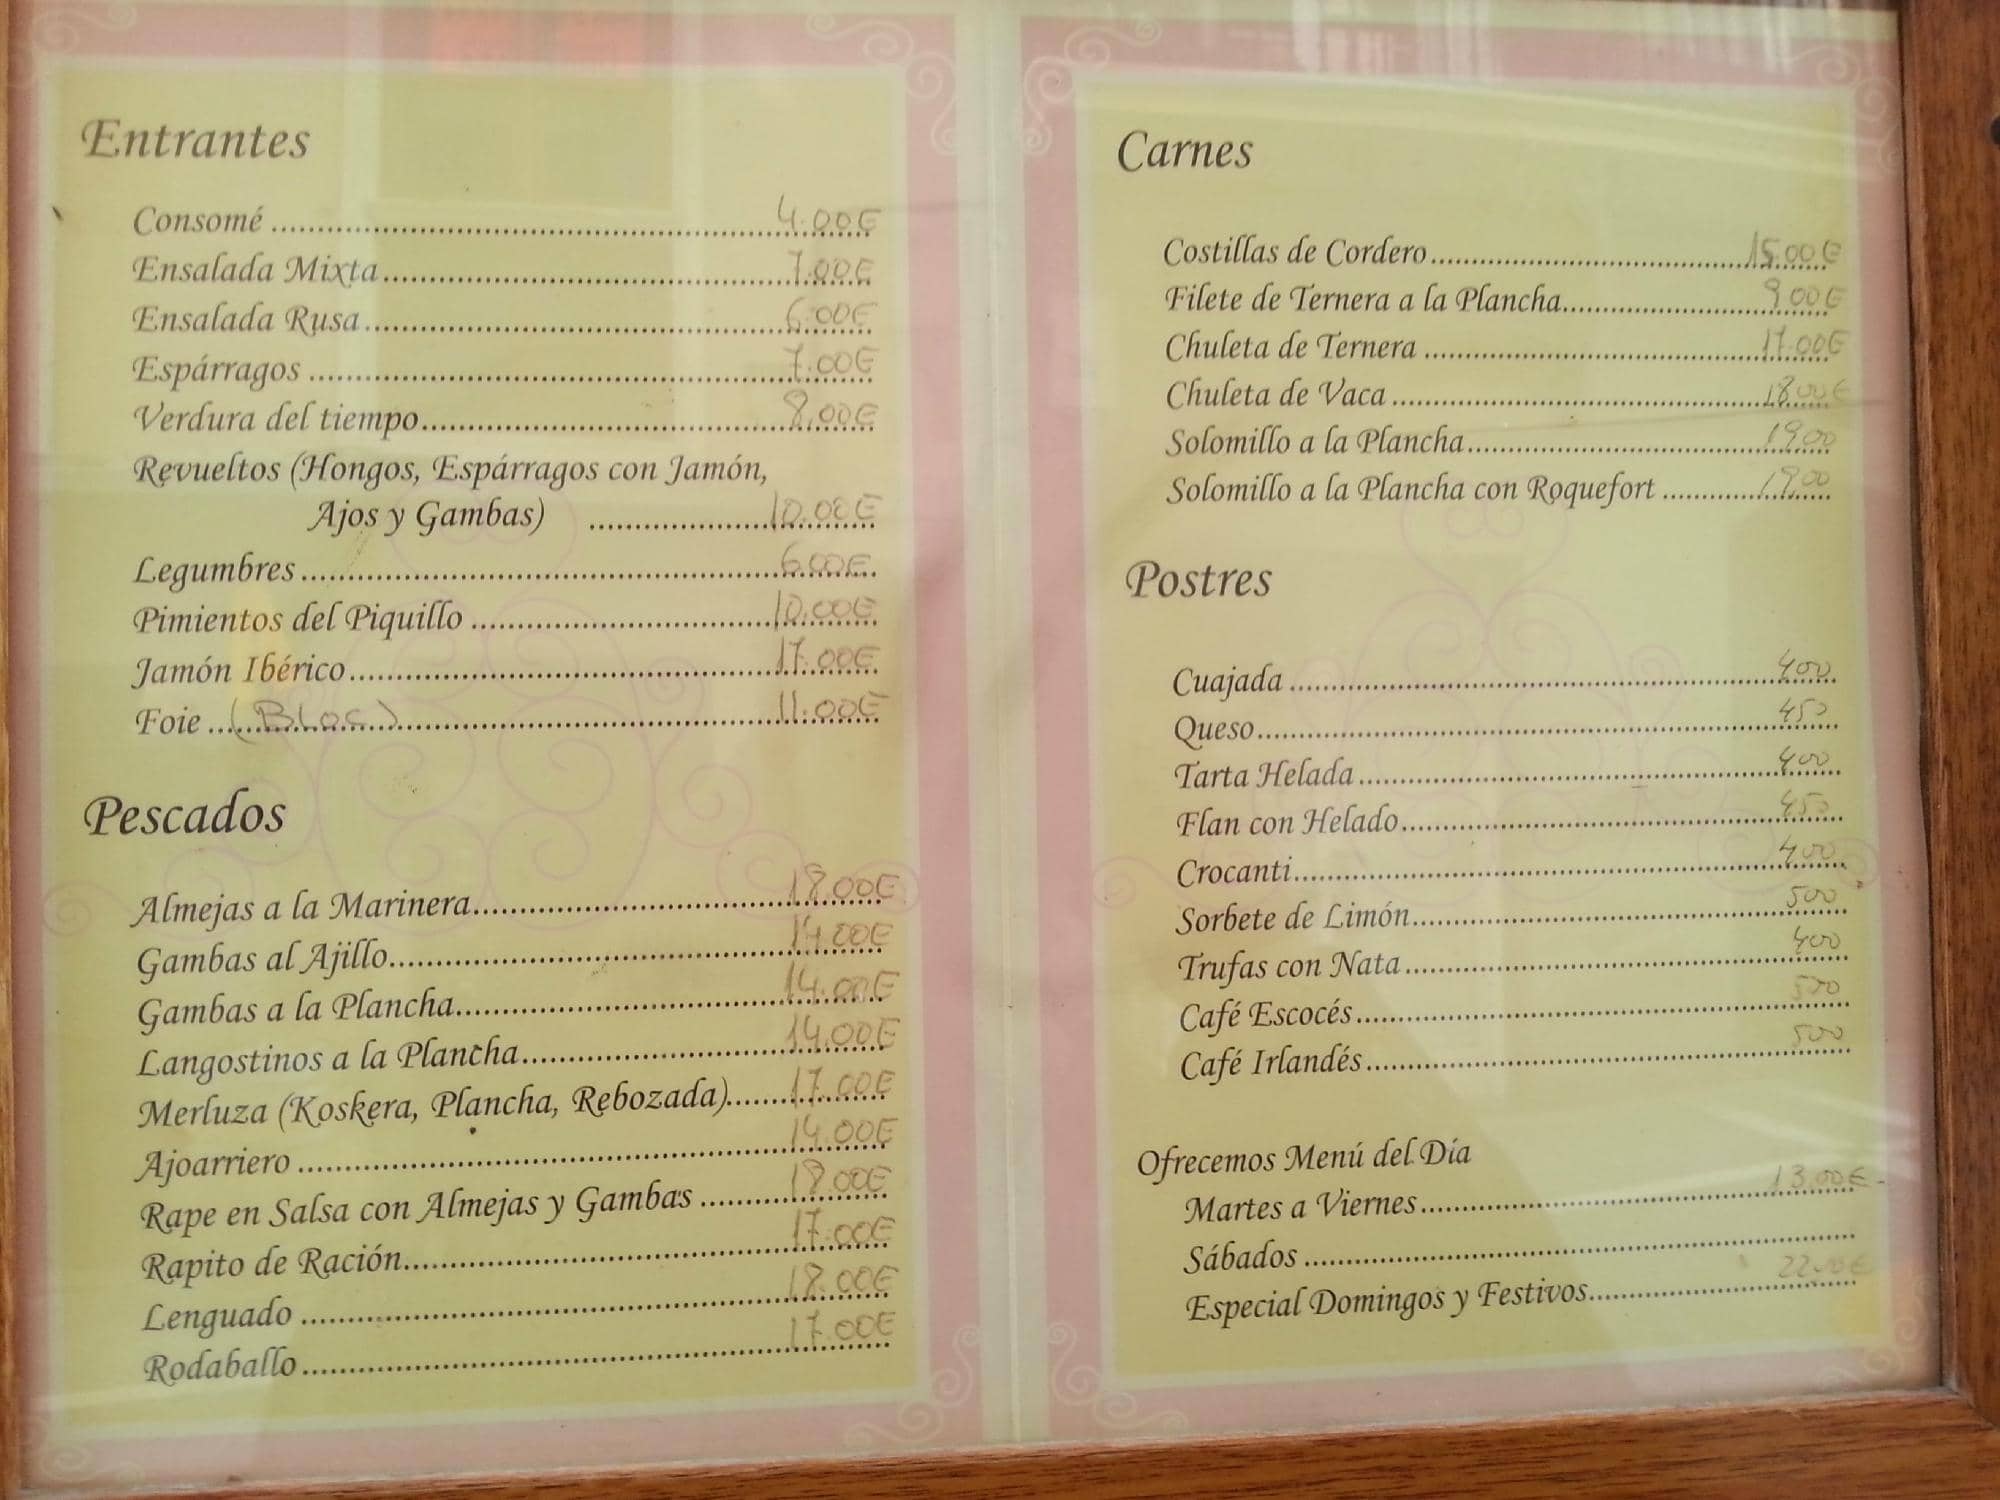 Entrantes
Consomé .......... 4.00€
Ensalada Mixta .......... 7.00€
Ensalada Rusa .......... 6.00€
Espárragos .......... 7.00€
Verdura del tiempo .......... 8.00€
Revueltos (Hongos, Espárragos con Jamón,
Ajos y Gambas) .......... 10.00€
Legumbres .......... 6.00€
Pimientos del Piquillo .......... 10.00€
Jamón Ibérico .......... 17.00€
Foie (Bloc) .......... 11.00€
Pescados
Almejas a la Marinera .......... 18.00€
Gambas al Ajillo .......... 14.00€
Gambas a la Plancha .......... 14.00€
Langostinos a la Plancha .......... 14.00€
Merluza (Koskera, Plancha, Rebozada) .......... 17.00€
Ajoarriero .......... 14.00€
Rape en Salsa con Almejas y Gambas .......... 18.00€
Rapito de Ración .......... 17.00€
Lenguado .......... 18.00€
Rodaballo .......... 17.00€
Carnes
Costillas de Cordero .......... 15.00€
Filete de Ternera a la Plancha .......... 9.00€
Chuleta de Ternera .......... 17.00€
Chuleta de Vaca .......... 18.00€
Solomillo a la Plancha .......... 19.00
Solomillo a la Plancha con Roquefort .......... 19.00
Postres
Cuajada .......... 400
Queso .......... 450
Tarta Helada .......... 400
Flan con Helado .......... 450
Crocanti .......... 400
Sorbete de Limón .......... 500
Trufas con Nata .......... 400
Café Escocés .......... 500
Café Irlandés .......... 500
Ofrecemos Menú del Día
Martes a Viernes .......... 13.00€
Sábados ..........
Especial Domingos y Festivos .......... 22.00€